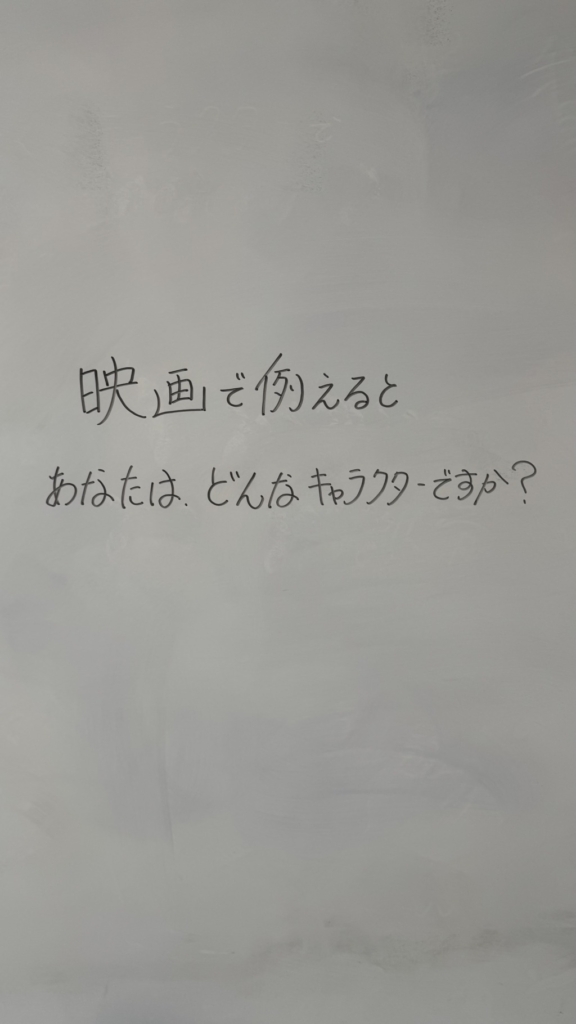 映画で例えると
あなたは、どんなキャラクターですか?